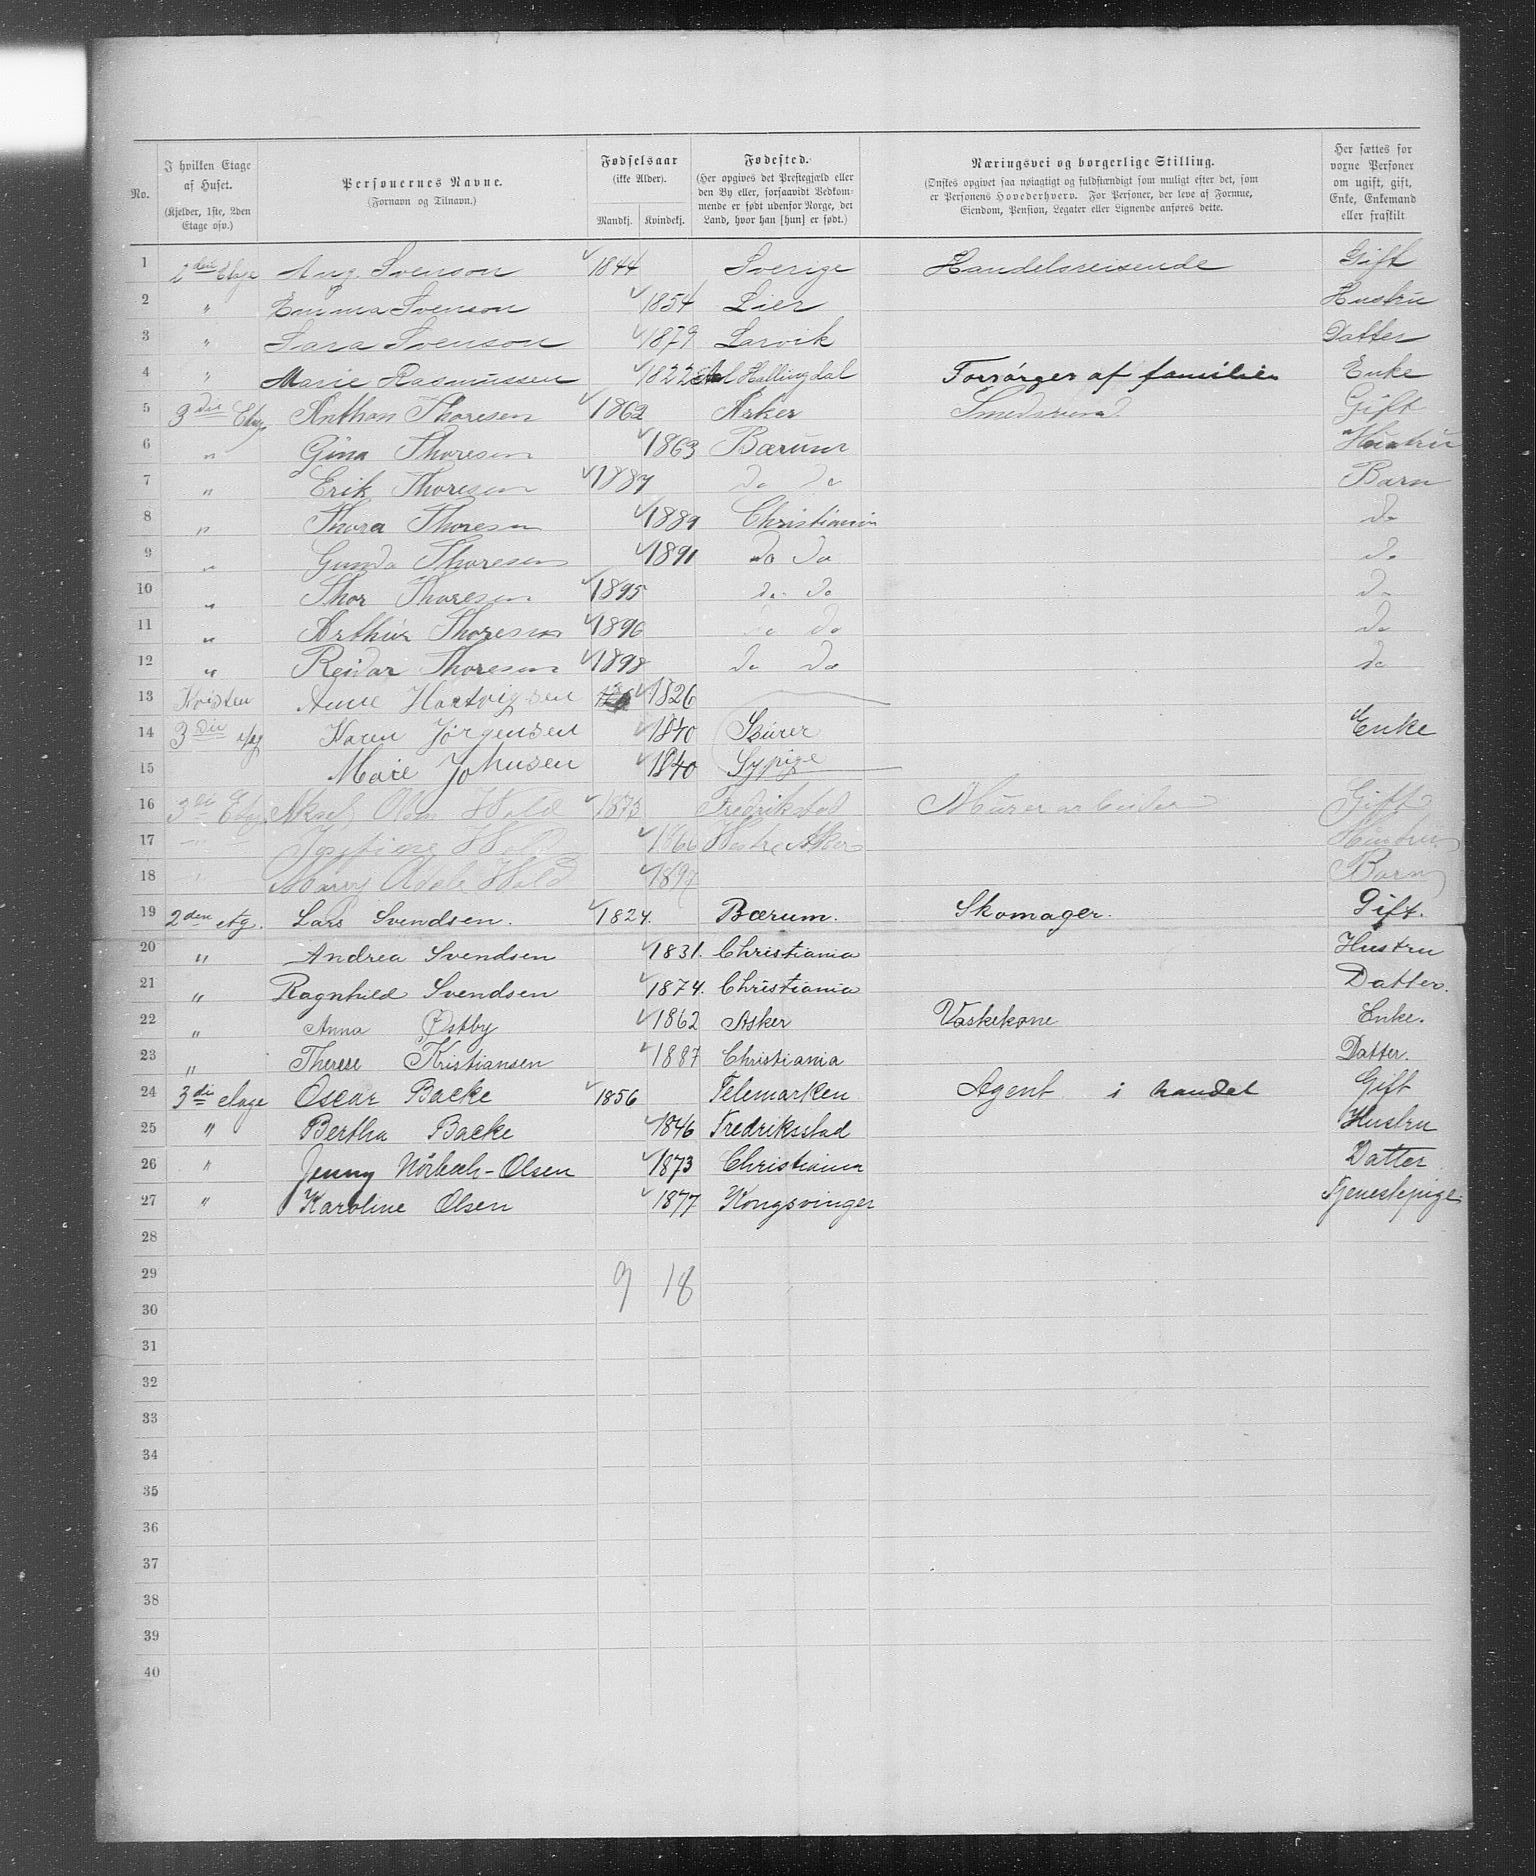 No. | I hvilken Etage af Huset. (Kjelder, 1ste, 2den Etage osv.) | Personernes Navne. (Fornavn og Tilnavn.) | Fødselsaar (ikke Alder). Mandkj. Kvindekj. | Fødested. (Her opgives det Prestegjæld eller den By eller, forsaavidt Vedkommende er født udenfor Norge, det Land, hvor han [hun] er født.) | Næringsvei og borgerlige Stilling. (Ønskes opgivet saa nøiagtigt og fuldstændigt som muligt efter det, som er Personens Hovederhverv. For Personer, der leve af Formue, Eiendom, Pension, Legater eller Lignende anføres dette. | Her sættes for voxne Personer om ugift, gift, Enke, Enkemand eller fraskilt
1 2den Etage Aug. Svenson 1844 Sverige Handelsreisende Gift
2 " Emma Svenson 1854 Lier Hustru
3 " Sara Svenson 1879 Larvik Datter
4 " Marie Rasmussen 1822 Aal Hallingdal Forsørges af familien Enke
5 3die Etag Anthon Thoresen 1862 Asker Smedsvend Gift
6 " Gina Thoresen 1863 Bærum Hustru
7 " Erik Thoresen 1887 do do Barn
8 " Thora Thoresen 1889 Christiania do
9 " Gunda Thoresen 1891 do do do
10 " Thor Thoresen 1895 do do do
11 " Arthur Thoresen 1896 do do do
12 " Reidar Thoresen 1898 do do do
13 Kvisten Anne Hartvigsen 1826
14 3die etg Karen Jørgensen 1840 Enke
15 Marie Johnsen 1840 Sypige
16 3die Etag Aksel Olsen Wold 1873 Fredrikstad Murerarbeider Gift
17 Josefine Wold Vestre Aker Hustru
18 Marry Adele Wold 1897 Barn
19 2den etg. Lars Svendsen. 1824. Bærum. Skomager. Gift.
20 " Andrea Svendsen 1831. Christiania Hustru
21 " Ragnhild Svendsen 1874. Christiania Datter.
22 " Anna Østby 1862 Asker Vaskekone Enke.
23 " Therese Kristiansen 1887 Christiania Datter.
24 3die etage Oscar Backe 1856 Telemarken Agent i handel Gift
25 " Bertha Backe 1846 Fredriksstad Hustru
26 " Jenny Nörbech-Olsen 1873 Christiania Datter
27 " Karoline Olsen 1877 Kongsvinger Tjenestepige
28
29 9 18
30
31
32
33
34
35
36
37
38
39
40